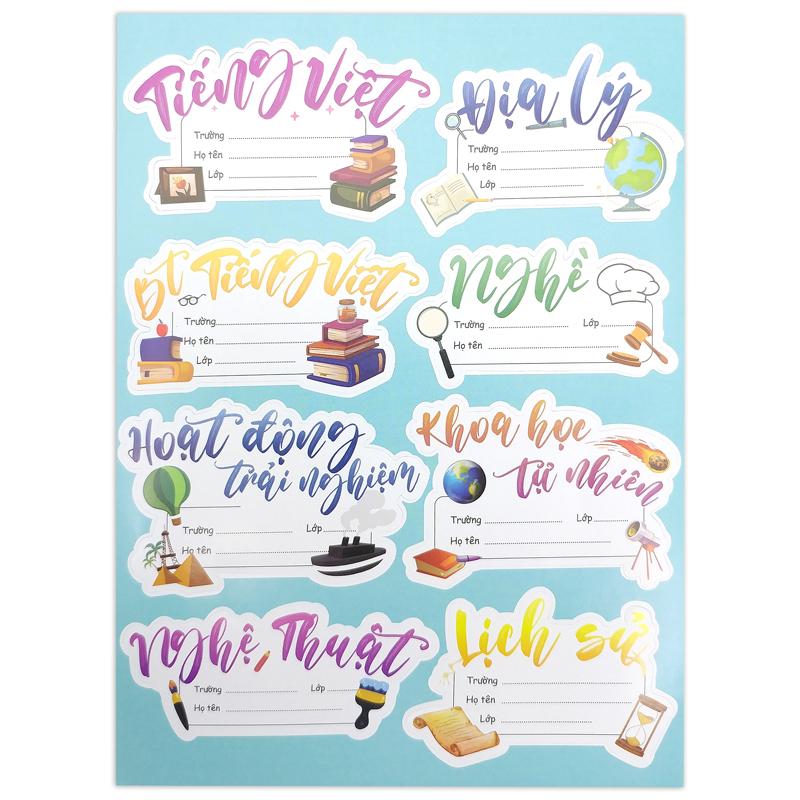 Tiếng Việt
Trường
Họ tên
Lớp
Địa lý
Trường
Họ tên
Lớp
BT Tiếng Việt
Trường
Họ tên
Lớp
Nghề
Trường Lớp
Họ tên
Hoạt động
trải nghiệm
Trường Lớp
Họ tên
Khoa học
tự nhiên
Trường Lớp
Họ tên
Nghệ Thuật
Trường Lớp
Họ tên
Lịch sử
Trường
Họ tên
Lớp